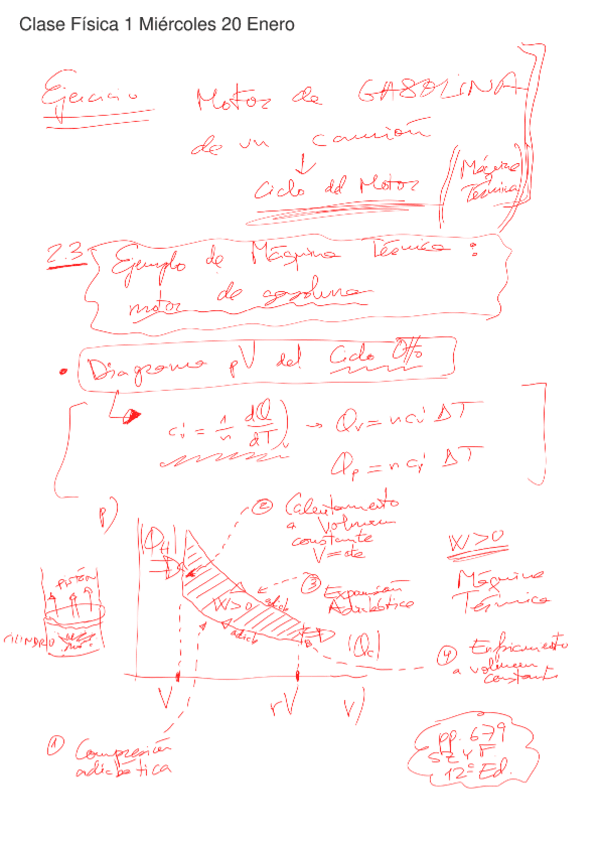 Clase Física 1 Miércoles 20 Enero
Ejercicio Motor de GASOLINA
de un camión
↓
Ciclo del Motor
(Máquina
Térmica)
2.3 Ejemplo de Máquina Térmica:
motor de gasolina
• Diagrama pV del Ciclo Otto
ci = 1/n dQ/dT)v → Qv = n ci ΔT
Qp = n ci ΔT
p)
|QH|
② Calentamiento
a Volumen
constante
V=cte
W>0
Máquina
Térmica
③ Expansión
Adiabática
W>0
|Qc|
④ Enfriamiento
a volumen
constante
PISTÓN
CILINDRO
V rV V)
① Compresión
adiabática
pp. 679
SZYF
12ª Ed.